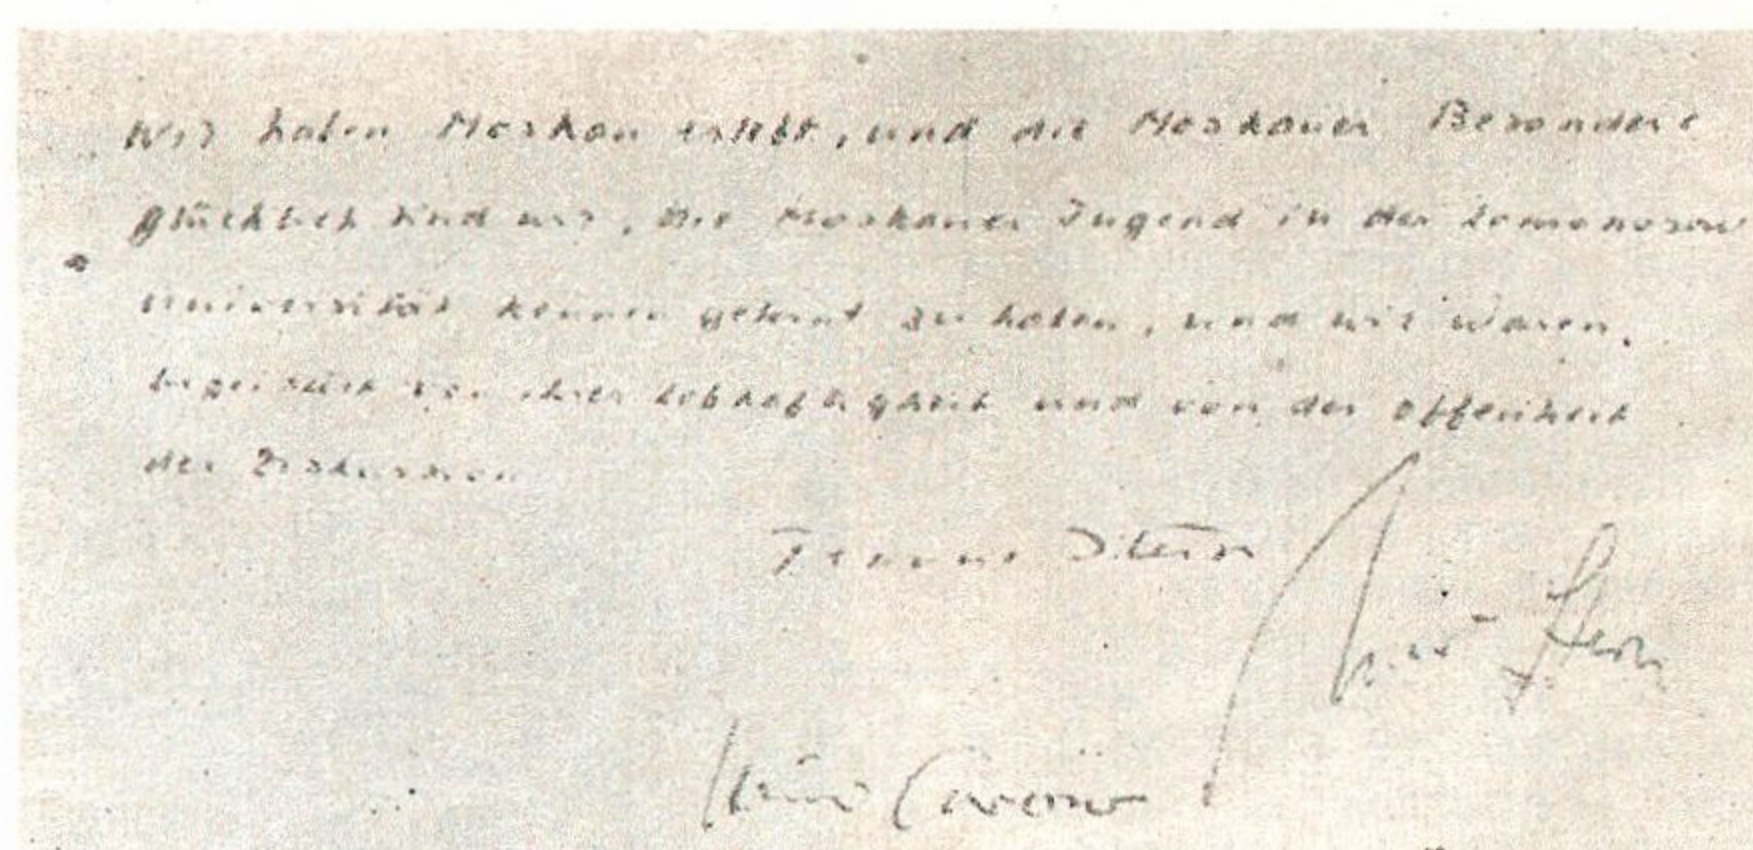 Wir haben Moskau erlebt, und die Moskauer Besonders
glücklich sind wir, die Moskauer Jugend in der Lomonosow
Universität kennen gelernt zu haben, und wir waren
begeistert von ihrer Lebhaftigkeit und von der Offenheit
der Diskussion
Stern